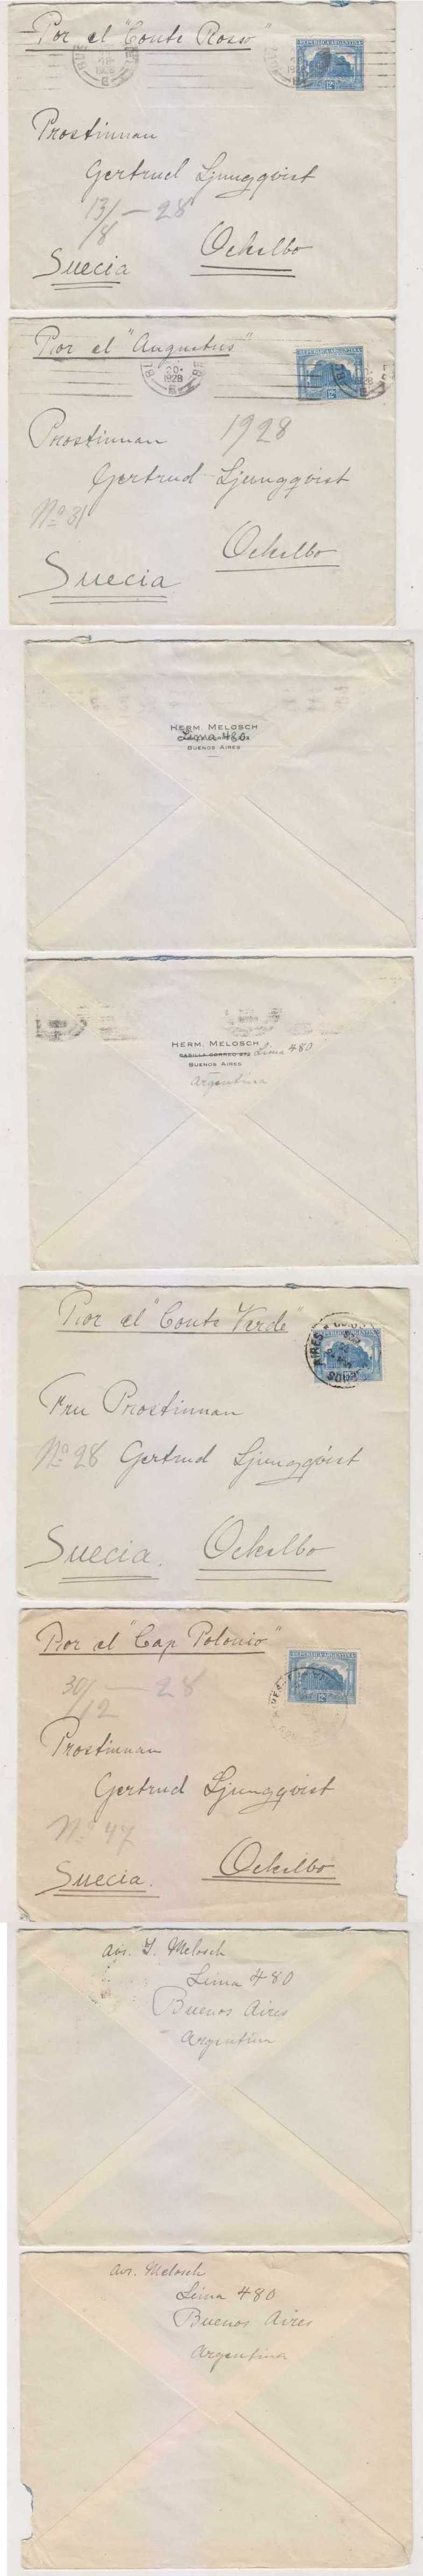 Por el "Conte Rosso"
REPUBLICA ARGENTINA
1928
12c
Prostinnan
Gertrud Ljungqvist
13/8 — 28
Ockelbo
Suecia
Por el "Augustus"
REPUBLICA ARGENTINA
20
1928
12c
Prostinnan 1928
Gertrud Ljungqvist
No 31
Ockelbo
Suecia
HERM. MELOSCH
Lima 480
BUENOS AIRES
HERM. MELOSCH
CASILLA CORREO Lima 480
BUENOS AIRES
Argentina
Por el "Conte Verde"
REPUBLICA ARGENTINA
AIRES
12c
Fru Prostinnan
No 28 Gertrud Ljungqvist
Suecia. Ockelbo
Por el "Cap Polonio"
REPUBLICA ARGENTINA
12c
30/12 — 28
Prostinnan
Gertrud Ljungqvist
No 47
Ockelbo
Suecia.
Avs. I. Melosch
Lima 480
Buenos Aires
Argentina
Avs. Melosch
Lima 480
Buenos Aires
Argentina